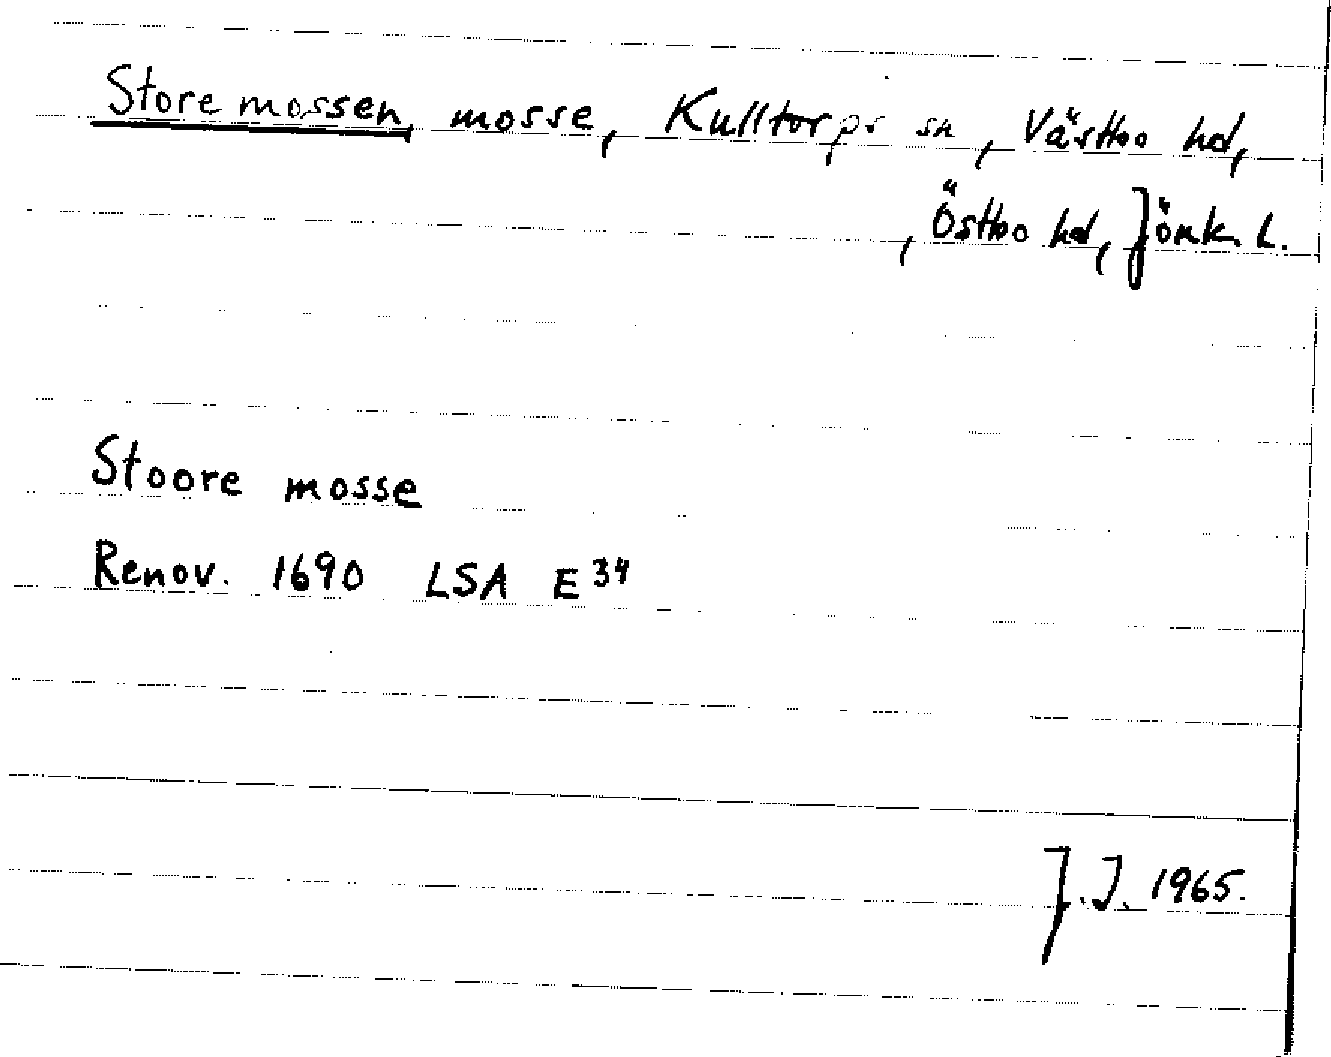 Store mossen, mosse, Kulltorps sn, Västbo hd,
, Östbo hd, Jönk. l.
Stoore mosse
Renov. 1690 LSA E 34
J.J. 1965.